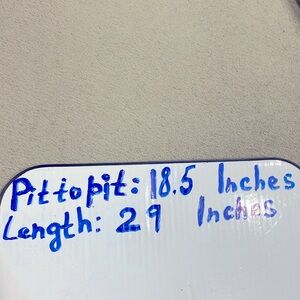 Pit to pit: 18.5 Inches
Length: 29 Inches